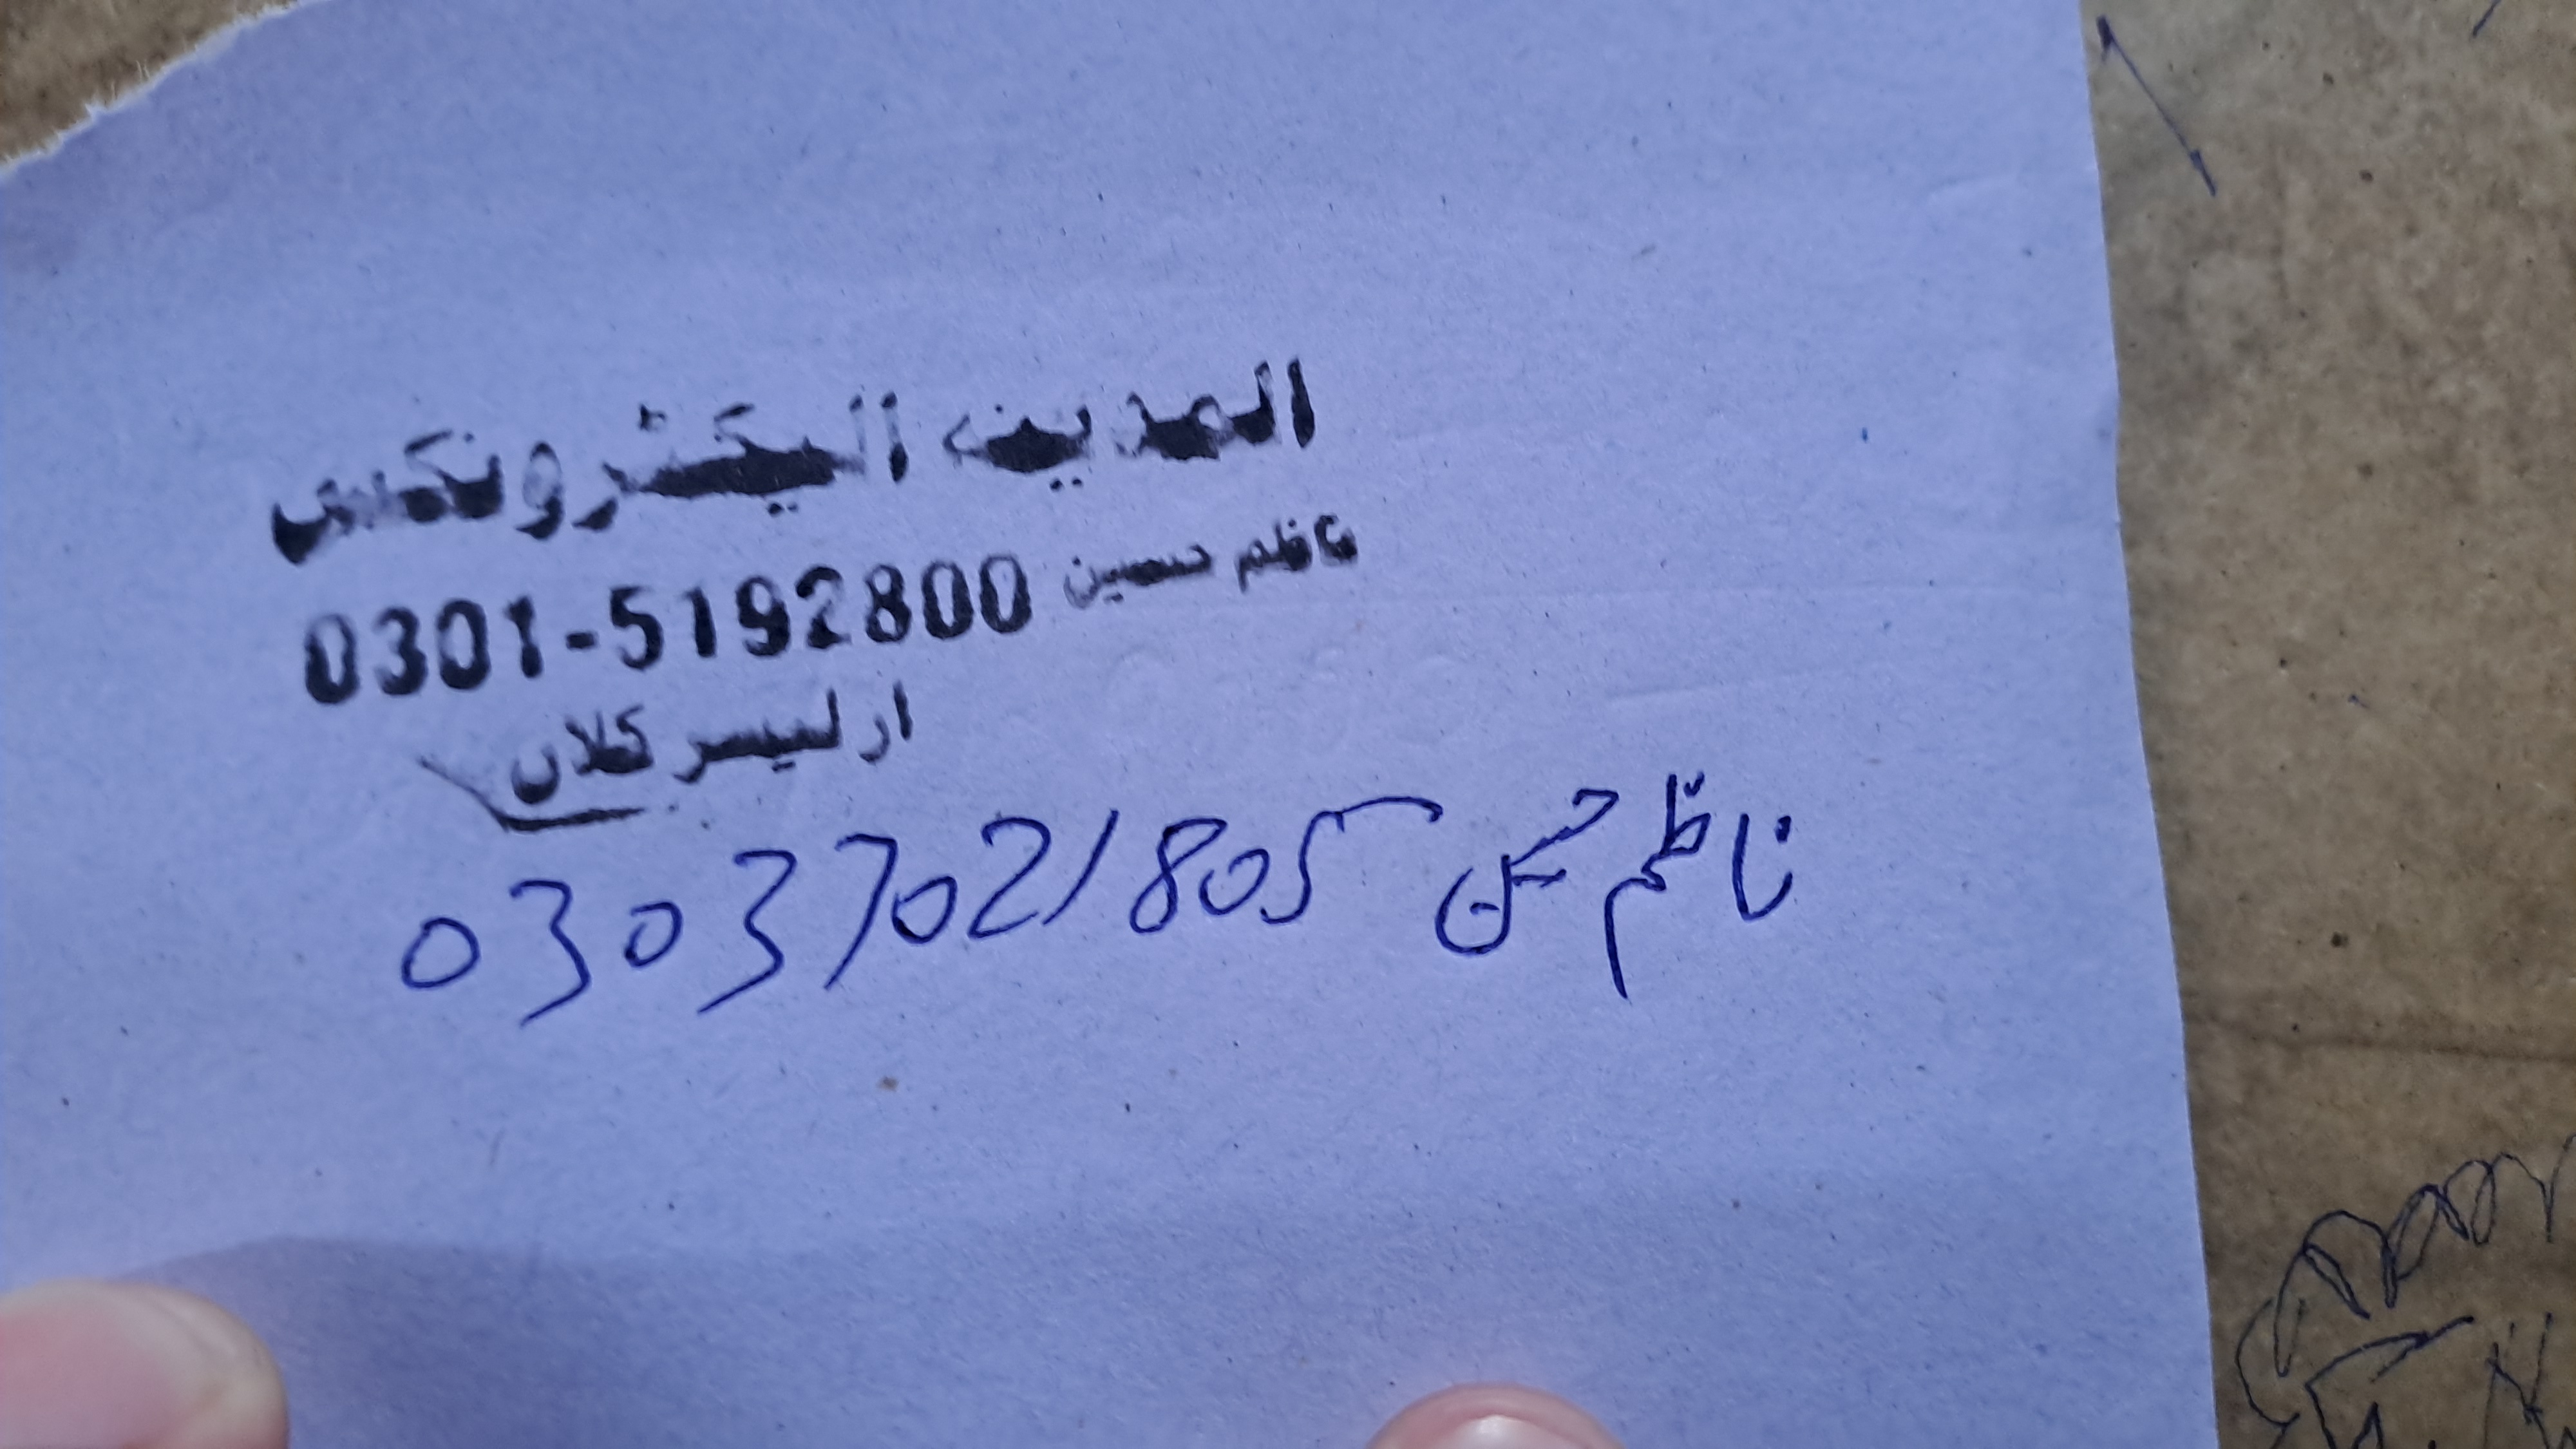 المدینہ الیکٹرونکس
ناظم حسین 0301-5192800
کلاں
ناظم حسین 03037021805